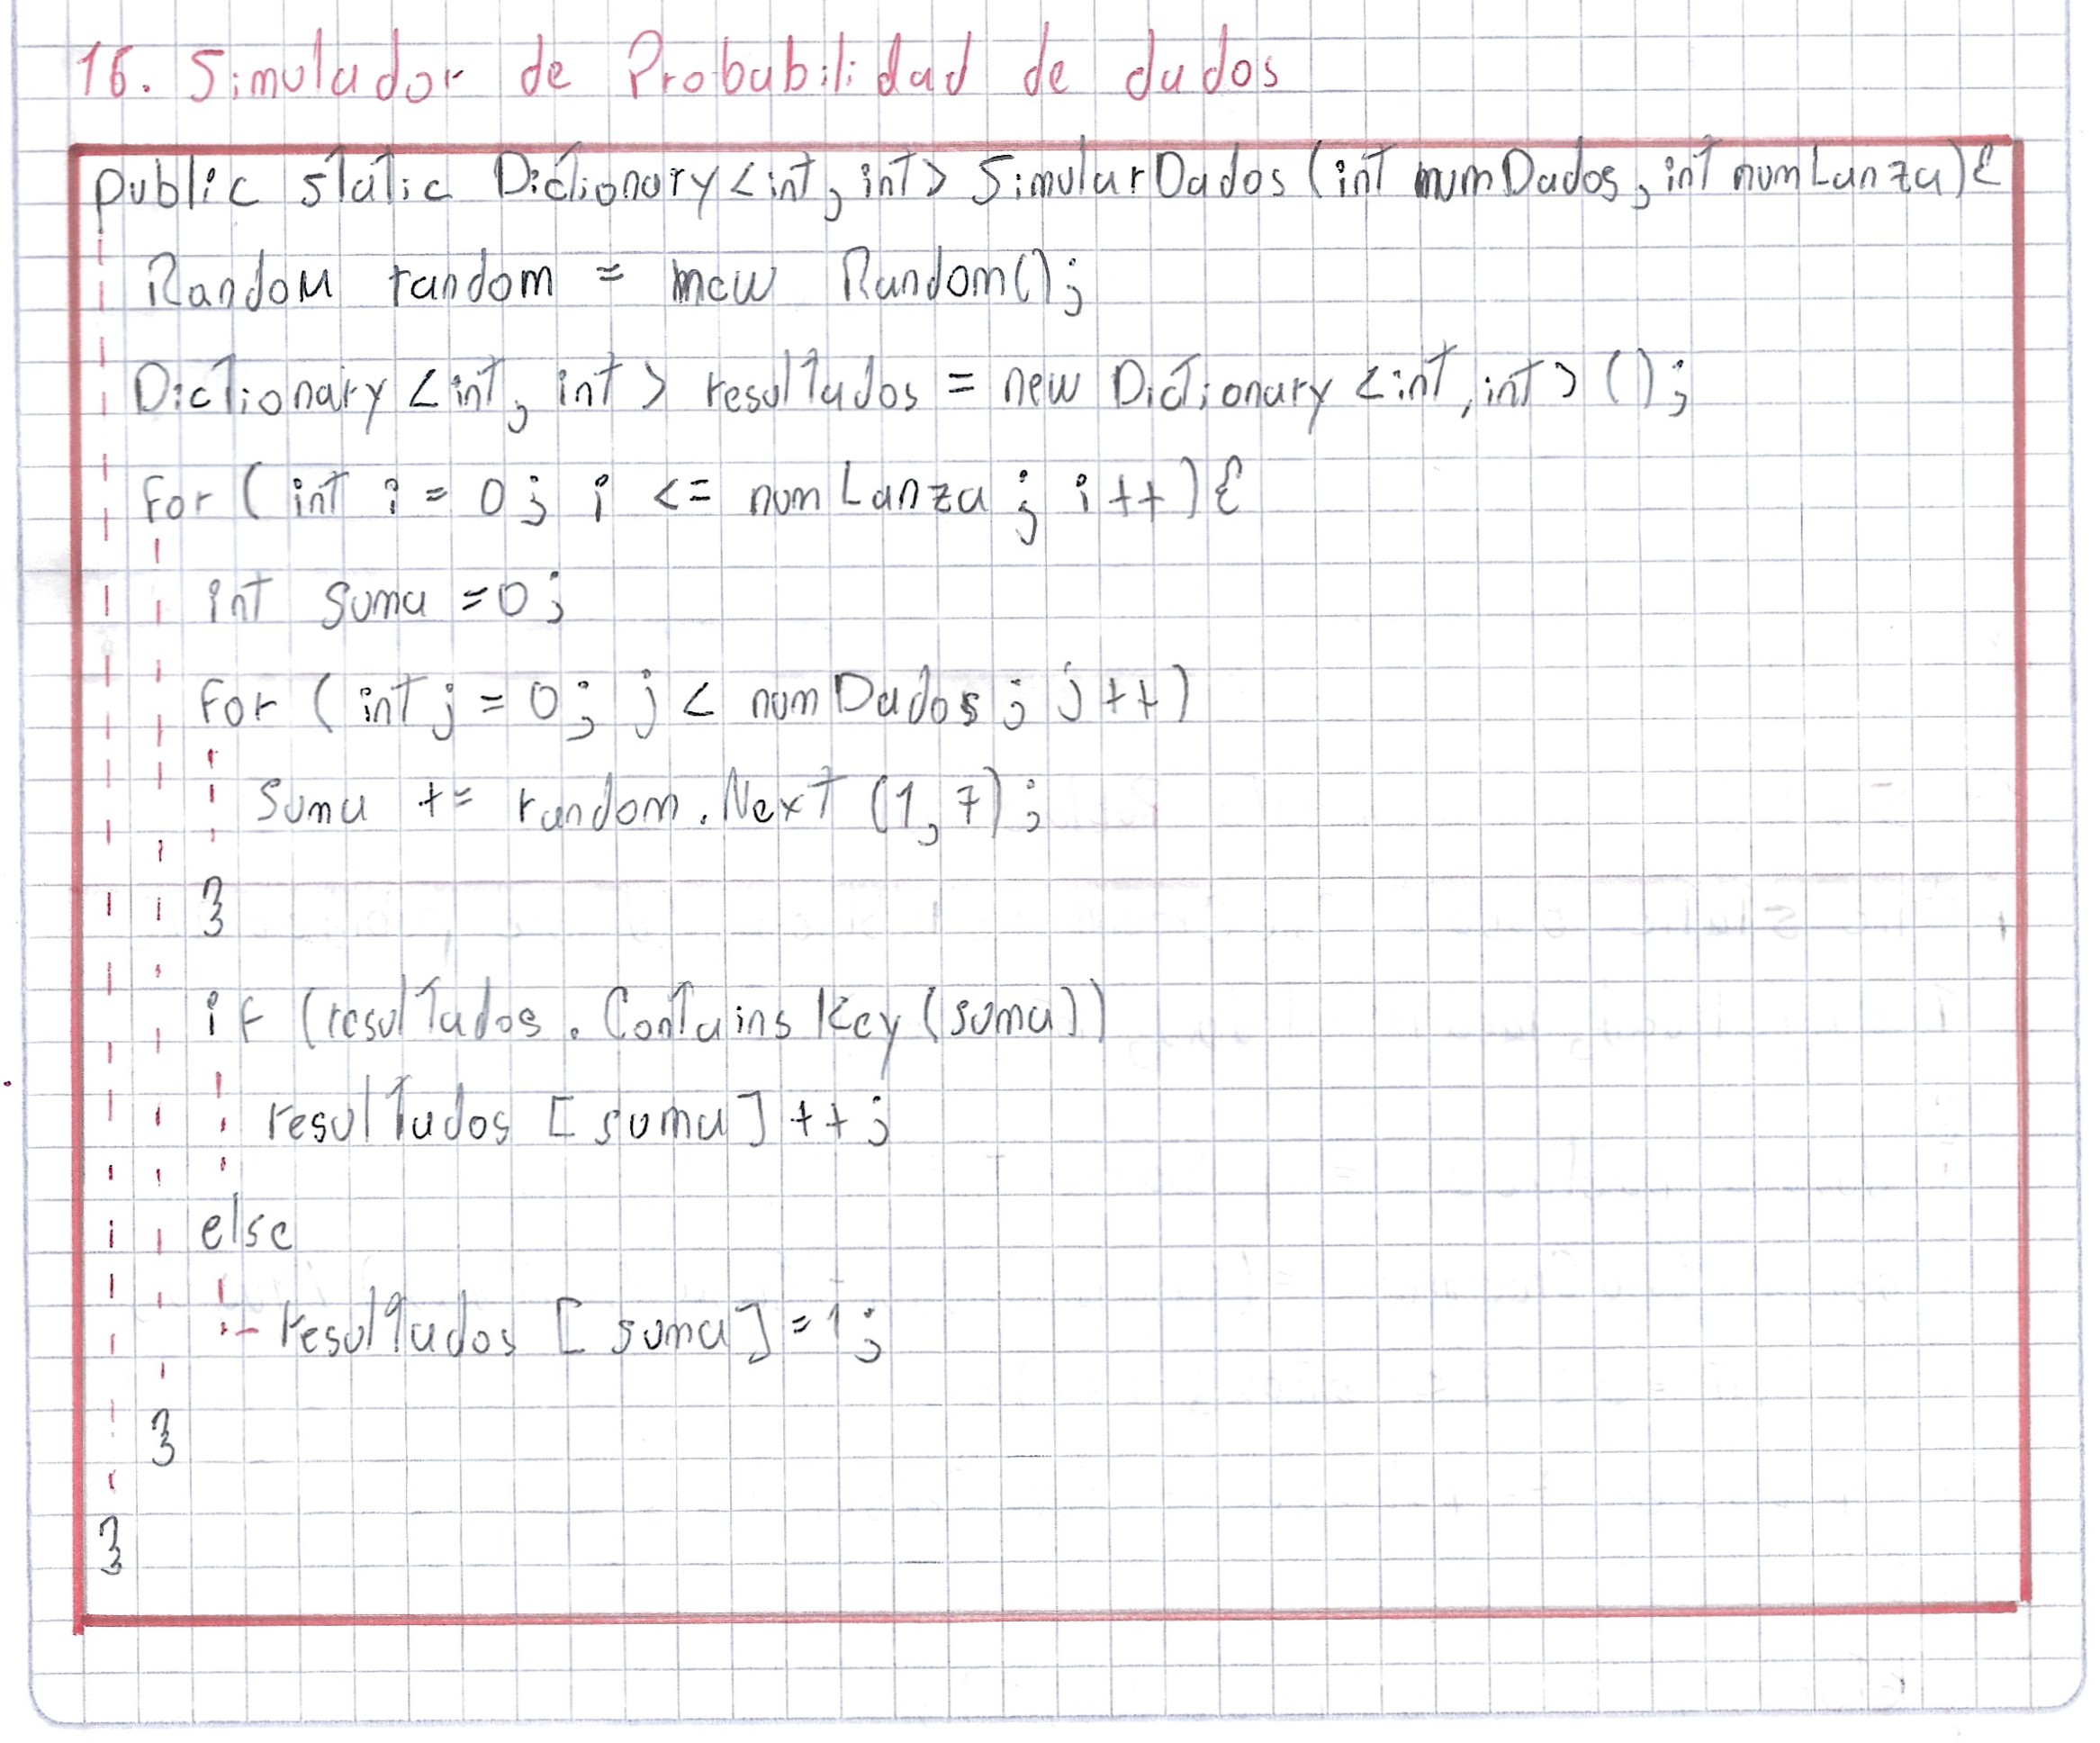 16. Simulador de Probabilidad de dados
public static Dictionary<int, int> SimularDados (int numDados, int numLanza){
Random random = new Random();
Dictionary<int, int> resultados = new Dictionary<int, int>();
for (int i = 0; i <= numLanza; i++){
int suma = 0;
for (int j = 0; j < numDados; j++)
suma += random.Next (1,7);
}
if (resultados.ContainsKey(suma))
resultados [suma]++;
else
resultados [suma] = 1;
}
}